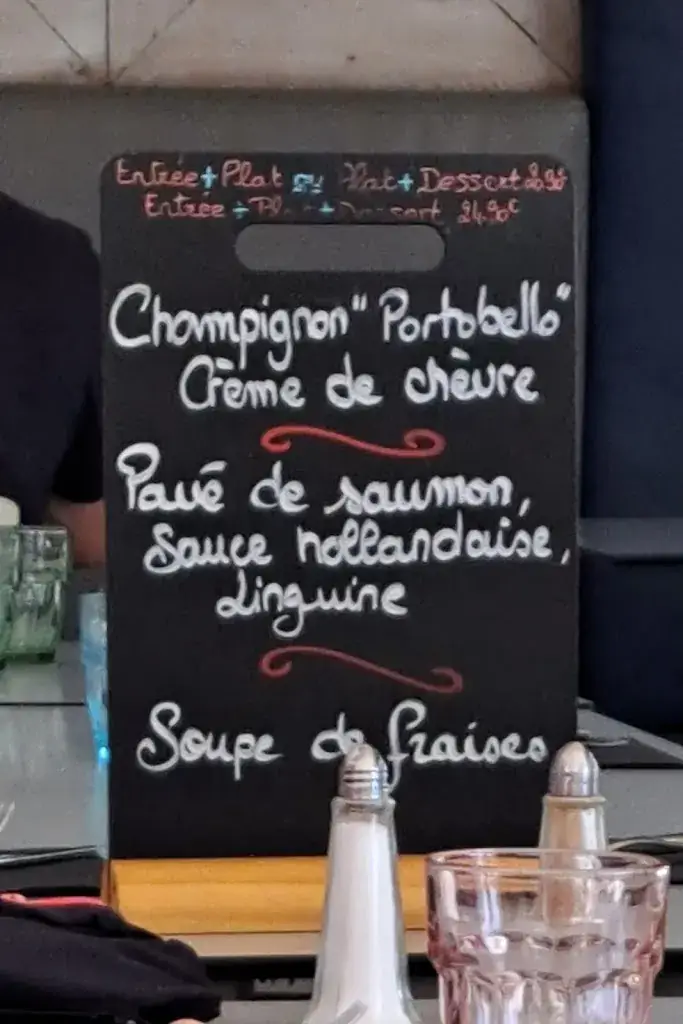 Entrée + Plat ou Plat + Dessert
Entrée + Plat + Dessert 24.90€
Champignon "Portobello"
Crème de chèvre
Pavé de saumon,
Sauce hollandaise,
Linguine
Soupe de fraises